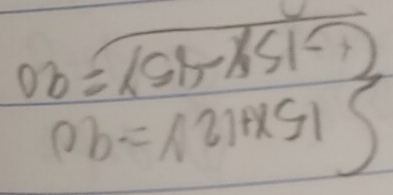 { 15x+12y=90
+ -15x-45y=90